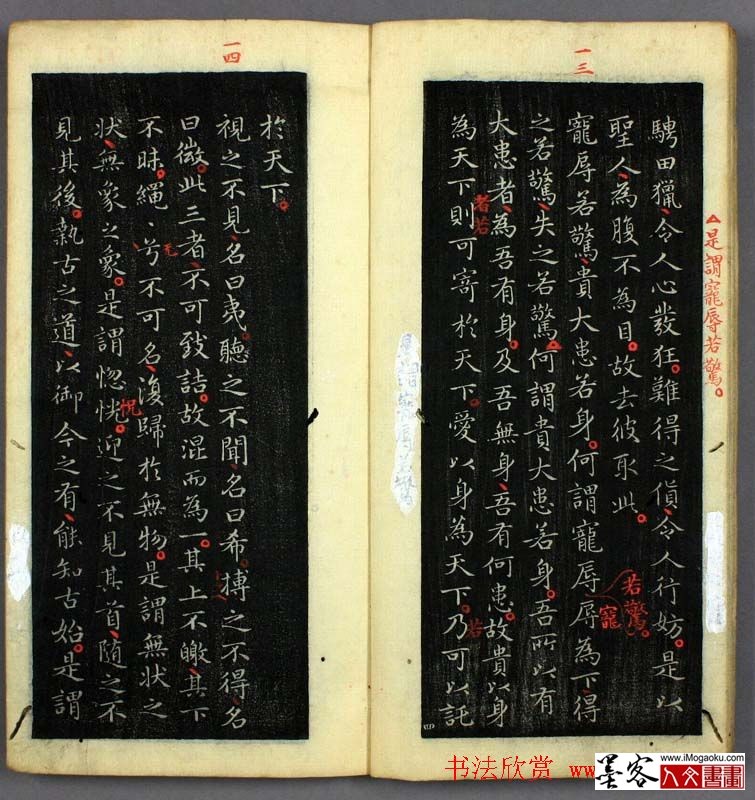 一三
△是謂寵辱若驚。
騁田獵、令人心發狂。難得之貨、令人行妨。是以
聖人、為腹不為目。故去彼取此。
寵辱若驚、貴大患若身。何謂寵辱辱為下、得
若驚。
寵
之若驚、失之若驚、何謂貴大患若身。吾所以有
大患者、為吾有身。及吾無身、吾有何患。故貴以身
者若
為天下則可寄於天下。愛以身為天下。乃可以託
若
是謂寵辱若驚
一四
於天下。
視之不見、名曰夷。聽之不聞、名曰希。搏之不得、名
曰微。此三者、不可致詰。故混而為一。其上不皦、其下
不昧。繩〻兮不可名、復歸於無物。是謂無狀之
狀、無象之象。是謂惚恍。迎之不見其首、隨之不
怳
見其後。執古之道、以御今之有、能知古始。是謂
书法欣赏
墨客
www.iMogaoku.com
人文書畫